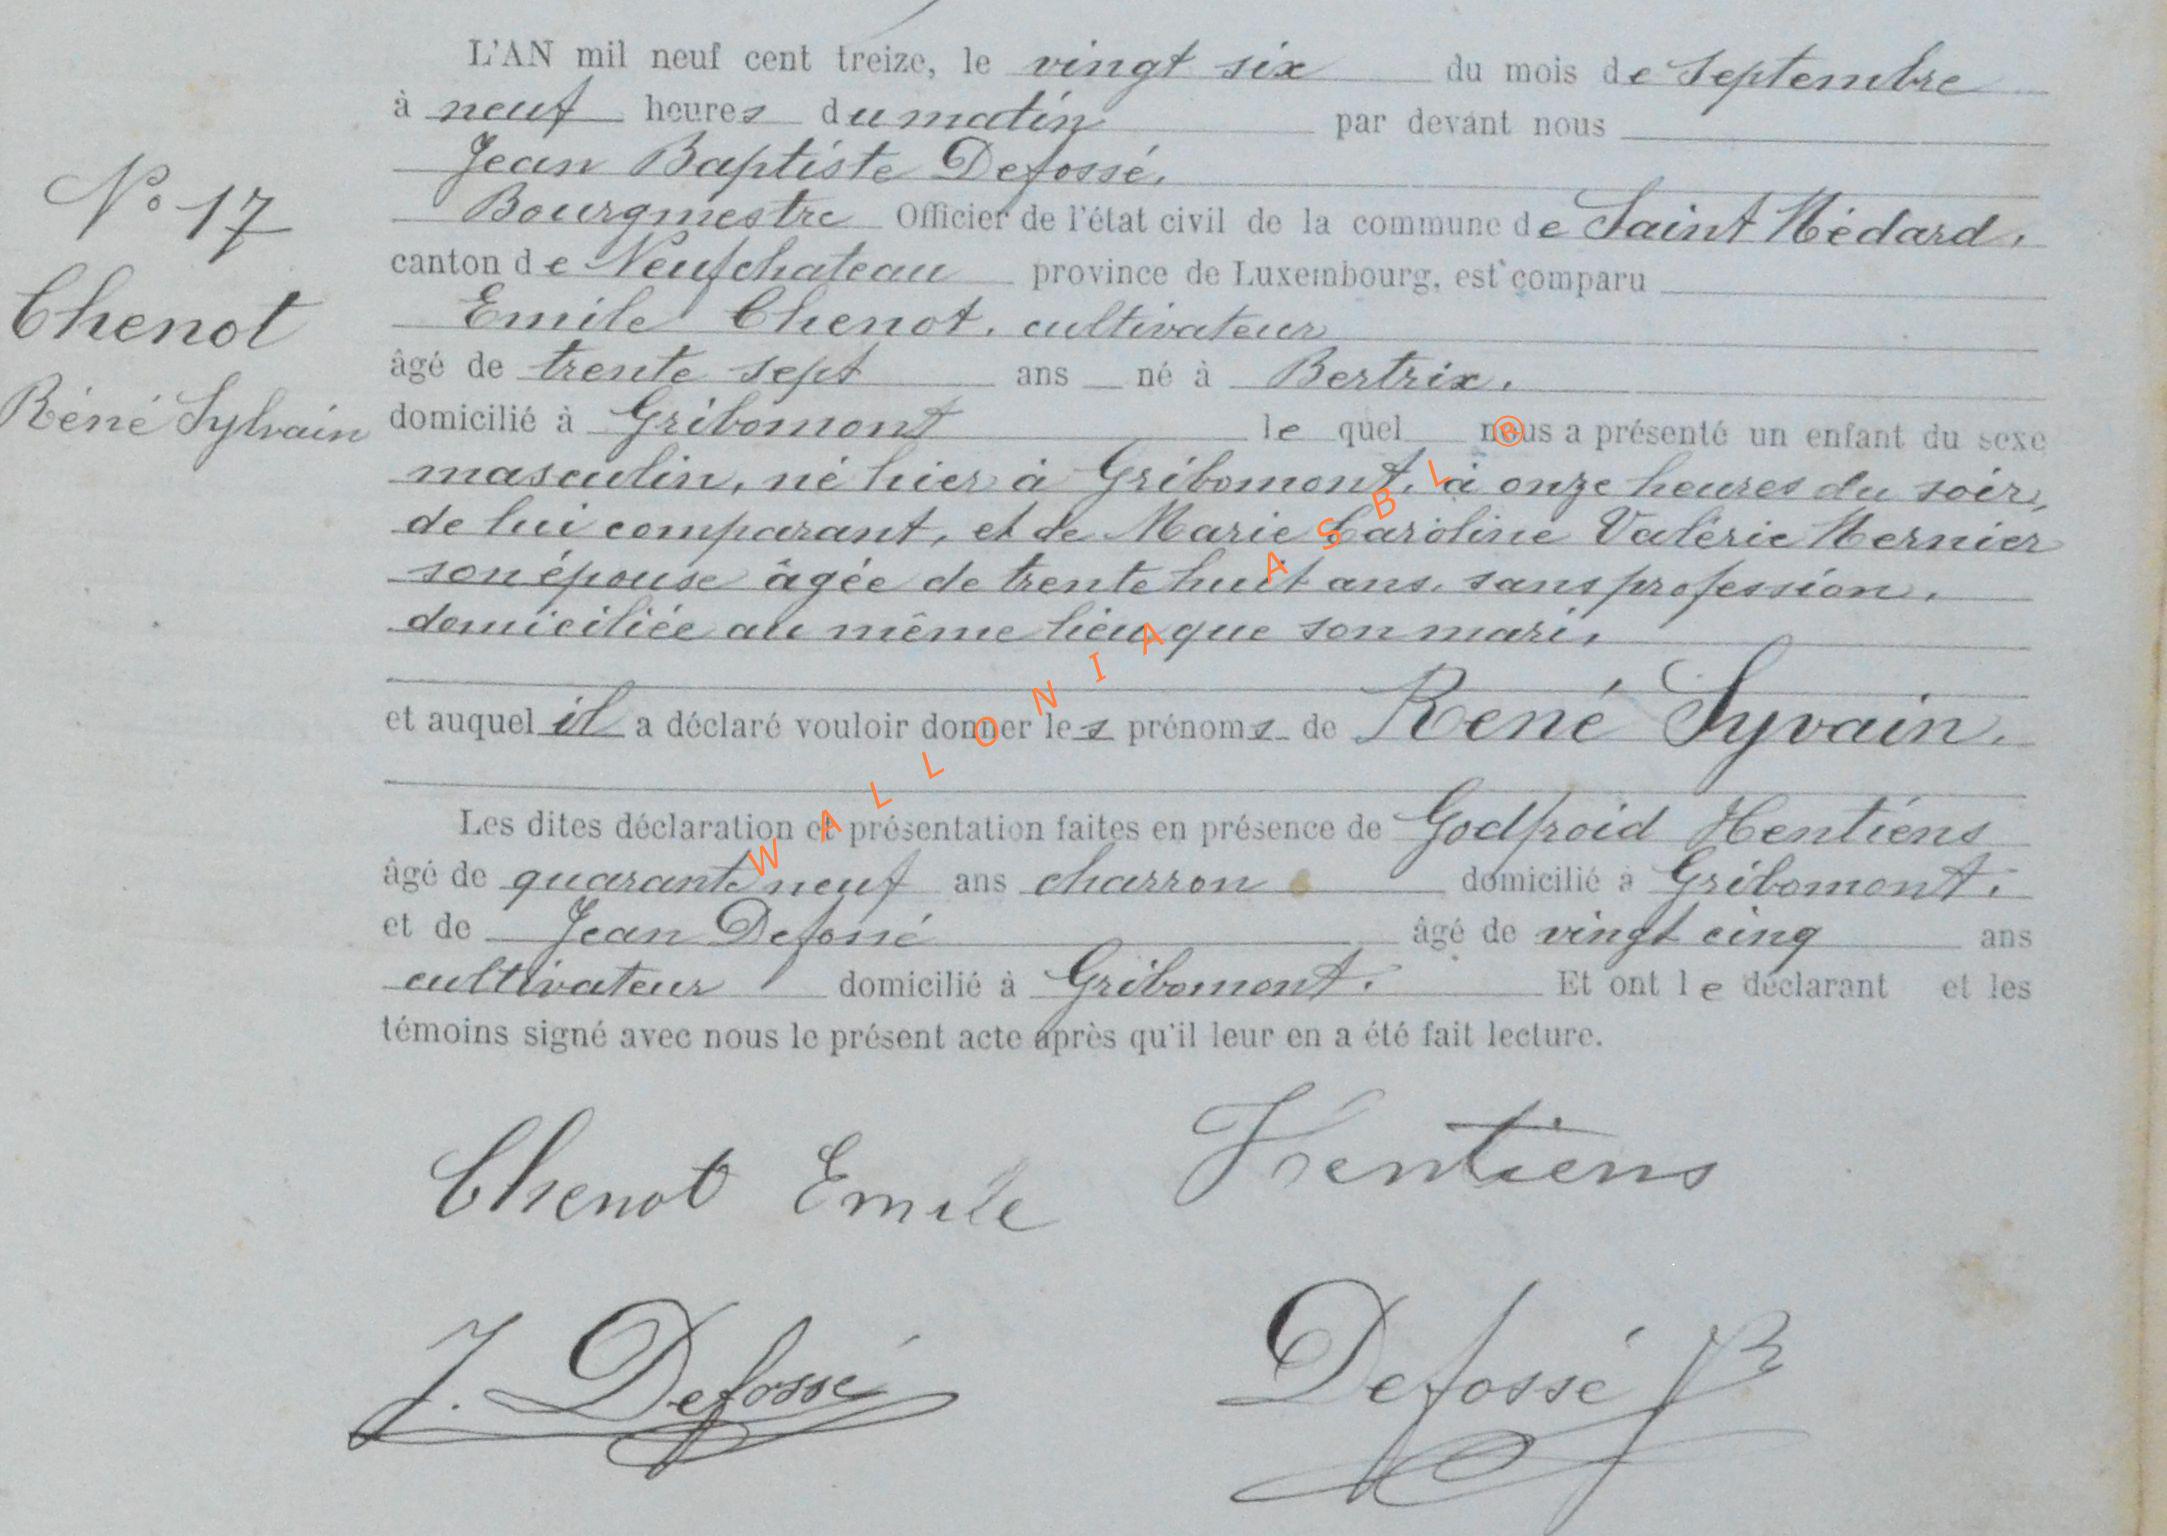 L'AN mil neuf cent treize, le vingt six du mois de Septembre
à neuf heures du matin par devant nous
Jean Baptiste Defossé,
Bourgmestre Officier de l'état civil de la commune de Saint Médard,
canton de Neufchateau province de Luxembourg, est comparu
Emile Chenot, cultivateur
âgé de trente sept ans né à Bertrix,
domicilié à Gribomont le quel nous a présenté un enfant du sexe
masculin, né hier à Gribomont, à onze heures du soir,
de lui comparant, et de Marie Caroline Valérie Mernier
son épouse âgée de trente huit ans, sans profession,
domiciliée au même lieu que son mari,
et auquel il a déclaré vouloir donner les prénoms de René Syvain,
Les dites déclaration et présentation faites en présence de Godfroid Hentiens
âgé de quarante neuf ans charron domicilié à Gribomont,
et de Jean Defossé âgé de vingt cinq ans
cultivateur domicilié à Gribomont. Et ont le déclarant et les
témoins signé avec nous le présent acte après qu'il leur en a été fait lecture.
N° 17
Chenot
Réné Sylvain
Chenot Emile Hentiens
J. Defossé Defossé JB
WALLONIA ASBL ®